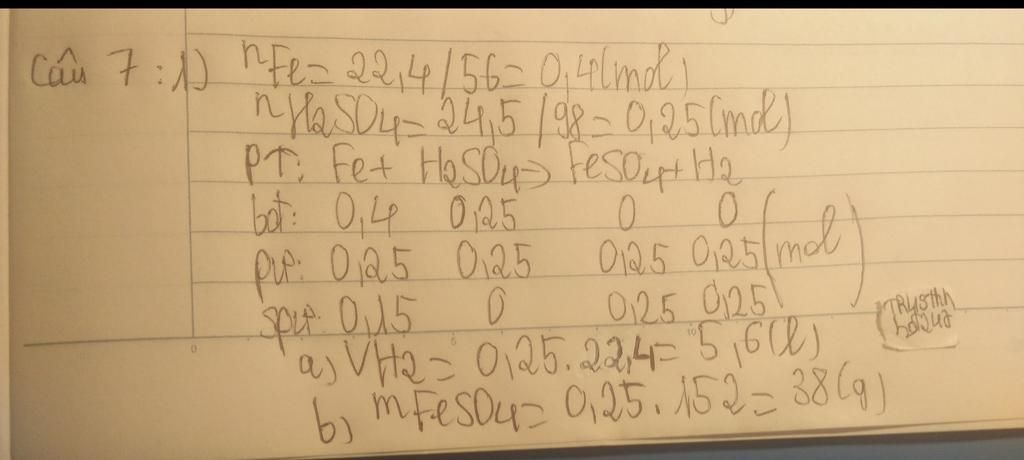 Câu 7: 1) nFe = 22,4 / 56 = 0,4 (mol)
nH2SO4 = 24,5 / 98 = 0,25 (mol)
PT: Fe + H2SO4 → FeSO4 + H2
bđt: 0,4 0,25 0 0 (mol)
pư: 0,25 0,25 0,25 0,25
spư: 0,15 0 0,25 0,25
a) VH2 = 0,25 . 22,4 = 5,6 (l)
b) mFeSO4 = 0,25 . 152 = 38 (g)